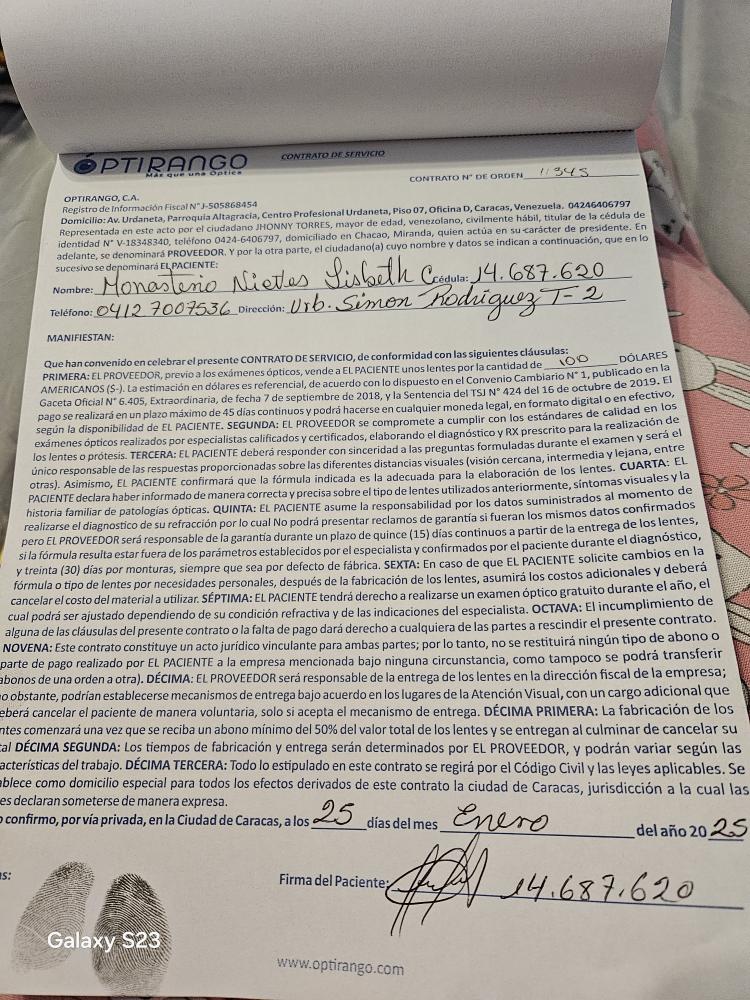 OPTIRANGO
Más que una Óptica
CONTRATO DE SERVICIO
CONTRATO N° DE ORDEN 11345
OPTIRANGO, C.A.
Registro de Información Fiscal N° J-505868454
Domicilio: Av. Urdaneta, Parroquia Altagracia, Centro Profesional Urdaneta, Piso 07, Oficina D, Caracas, Venezuela. 04246406797
Representada en este acto por el ciudadano JHONNY TORRES, mayor de edad, venezolano, civilmente hábil, titular de la cédula de
identidad N° V-18348340, teléfono 0424-6406797, domiciliado en Chacao, Miranda, quien actúa en su carácter de presidente. En
adelante, se denominará PROVEEDOR. Y por la otra parte, el ciudadano(a) cuyo nombre y datos se indican a continuación, que en lo
sucesivo se denominará EL PACIENTE:
Nombre: Monasterio Nieves Lisbeth C Cédula: 14.687.620
Teléfono: 0412 7007536 Dirección: Urb. Simon Rodriguez T-2
MANIFIESTAN:
Que han convenido en celebrar el presente CONTRATO DE SERVICIO, de conformidad con las siguientes cláusulas:
PRIMERA: EL PROVEEDOR, previo a los exámenes ópticos, vende a EL PACIENTE unos lentes por la cantidad de 100 DÓLARES
AMERICANOS ($-). La estimación en dólares es referencial, de acuerdo con lo dispuesto en el Convenio Cambiario N° 1, publicado en la
Gaceta Oficial N° 6.405, Extraordinaria, de fecha 7 de septiembre de 2018, y la Sentencia del TSJ N° 424 del 16 de octubre de 2019. El
pago se realizará en un plazo máximo de 45 días continuos y podrá hacerse en cualquier moneda legal, en formato digital o en efectivo,
según la disponibilidad de EL PACIENTE. SEGUNDA: EL PROVEEDOR se compromete a cumplir con los estándares de calidad en los
exámenes ópticos realizados por especialistas calificados y certificados, elaborando el diagnóstico y RX prescrito para la realización de
los lentes o prótesis. TERCERA: EL PACIENTE deberá responder con sinceridad a las preguntas formuladas durante el examen y será el
único responsable de las respuestas proporcionadas sobre las diferentes distancias visuales (visión cercana, intermedia y lejana, entre
otras). Asimismo, EL PACIENTE confirmará que la fórmula indicada es la adecuada para la elaboración de los lentes. CUARTA: EL
PACIENTE declara haber informado de manera correcta y precisa sobre el tipo de lentes utilizados anteriormente, síntomas visuales y la
historia familiar de patologías ópticas. QUINTA: EL PACIENTE asume la responsabilidad por los datos suministrados al momento de
realizarse el diagnostico de su refracción por lo cual No podrá presentar reclamos de garantía si fueran los mismos datos confirmados
pero EL PROVEEDOR será responsable de la garantía durante un plazo de quince (15) días continuos a partir de la entrega de los lentes,
si la fórmula resulta estar fuera de los parámetros establecidos por el especialista y confirmados por el paciente durante el diagnóstico,
y treinta (30) días por monturas, siempre que sea por defecto de fábrica. SEXTA: En caso de que EL PACIENTE solicite cambios en la
fórmula o tipo de lentes por necesidades personales, después de la fabricación de los lentes, asumirá los costos adicionales y deberá
cancelar el costo del material a utilizar. SÉPTIMA: EL PACIENTE tendrá derecho a realizarse un examen óptico gratuito durante el año, el
cual podrá ser ajustado dependiendo de su condición refractiva y de las indicaciones del especialista. OCTAVA: El incumplimiento de
alguna de las cláusulas del presente contrato o la falta de pago dará derecho a cualquiera de las partes a rescindir el presente contrato.
NOVENA: Este contrato constituye un acto jurídico vinculante para ambas partes; por lo tanto, no se restituirá ningún tipo de abono o
parte de pago realizado por EL PACIENTE a la empresa mencionada bajo ninguna circunstancia, como tampoco se podrá transferir
abonos de una orden a otra). DÉCIMA: EL PROVEEDOR será responsable de la entrega de los lentes en la dirección fiscal de la empresa;
o obstante, podrían establecerse mecanismos de entrega bajo acuerdo en los lugares de la Atención Visual, con un cargo adicional que
eberá cancelar el paciente de manera voluntaria, solo si acepta el mecanismo de entrega. DÉCIMA PRIMERA: La fabricación de los
ntes comenzará una vez que se reciba un abono mínimo del 50% del valor total de los lentes y se entregan al culminar de cancelar su
tal DÉCIMA SEGUNDA: Los tiempos de fabricación y entrega serán determinados por EL PROVEEDOR, y podrán variar según las
racterísticas del trabajo. DÉCIMA TERCERA: Todo lo estipulado en este contrato se regirá por el Código Civil y las leyes aplicables. Se
ablece como domicilio especial para todos los efectos derivados de este contrato la ciudad de Caracas, jurisdicción a la cual las
es declaran someterse de manera expresa.
o confirmo, por vía privada, en la Ciudad de Caracas, a los 25 días del mes Enero del año 2025
as:
Firma del Paciente: 14.687.620
Galaxy S23
www.optirango.com